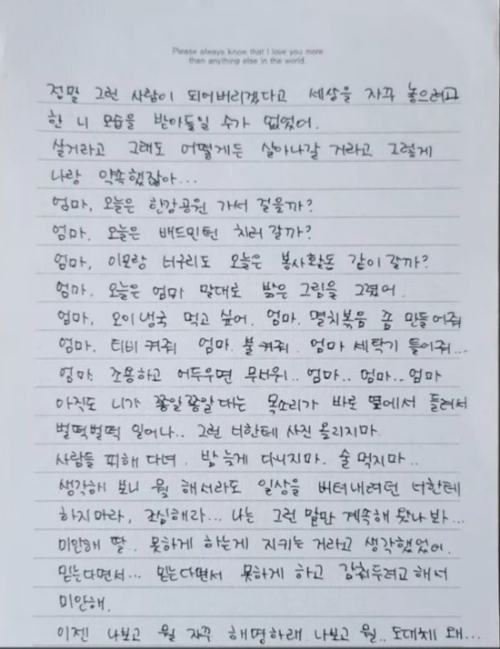 Please always know that I love you more
than anything else in the world.
정말 그런 사람이 되어버리겠다고 세상을 자꾸 놓으려고
한 니 모습을 받아들일 수가 없었어.
살거라고 그래도 어떻게든 살아나갈 거라고 그렇게
나랑 약속했잖아...
엄마, 오늘은 한강공원 가서 걸을까?
엄마. 오늘은 배드민턴 치러 갈까?
엄마, 이모랑 너구리도 오늘은 봉사활동 같이 갈까?
엄마. 오늘은 엄마 말대로 밝은 그림을 그렸어.
엄마, 오이냉국 먹고 싶어. 엄마. 멸치볶음 좀 만들어줘
엄마. 티비 켜줘 엄마. 불 켜줘. 엄마 세탁기 틀어줘...
엄마. 조용하고 어두우면 무서워.. 엄마.. 엄마.. 엄마
아직도 니가 쫑알쫑알 대는 목소리가 바로 옆에서 들려서
벌떡벌떡 일어나.. 그런 너한테 사진 올리지마.
사람들 피해 다녀. 밤 늦게 다니지마. 술 먹지마..
생각해 보니 뭘 해서라도 일상을 버텨내려던 너한테
하지마라, 조심해라... 나는 그런 말만 계속해 댔나봐...
미안해 딸. 못하게 하는게 지키는 거라고 생각했었어.
믿는다면서... 믿는다면서 못하게 하고 감춰두려고 해서
미안해.
이젠 나보고 뭘 자꾸 해명하래. 나보고 뭘.. 도대체 왜...